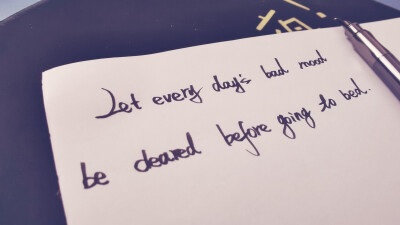 Let every day's bad mood
be cleared before going to bed.